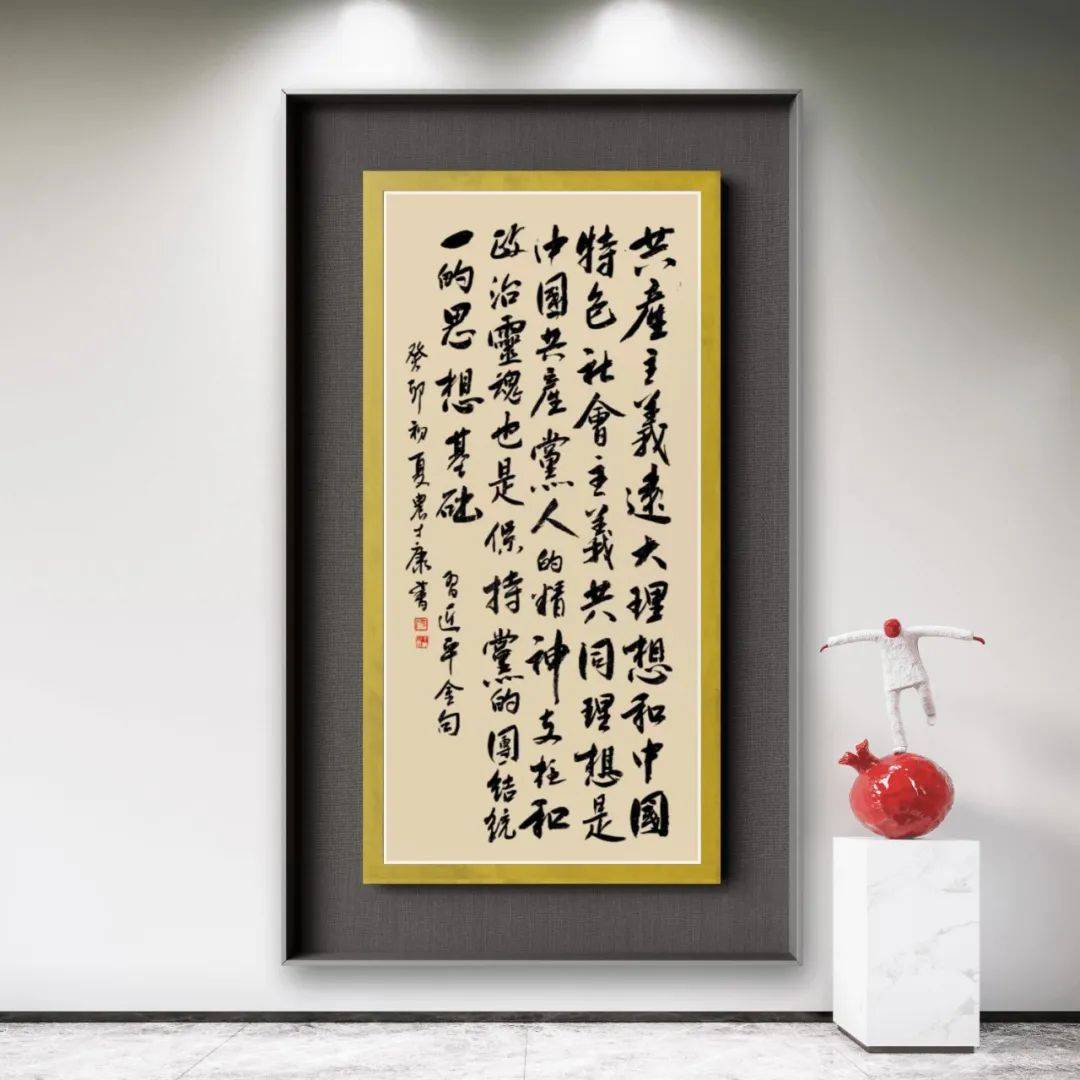 共產主義遠大理想和中國
特色社會主義共同理想是
中國共產黨人的精神支柱和
政治靈魂也是保持黨的團结統
一的思想基础
習近平金句
癸卯初夏農士康書